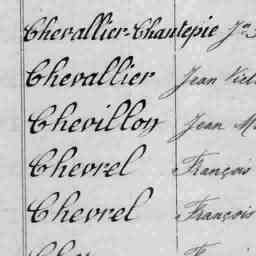 Chevallier-Chantepie Jn
Chevallier Jean Vict
Chevillon Jean M
Chevrel François
Chevrel François